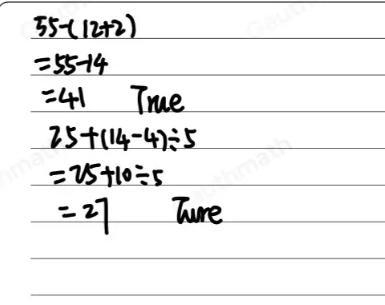 55-(12+2)
=55-14
=41 True
25+(14-4)÷5
=25+10÷5
=27 Ture